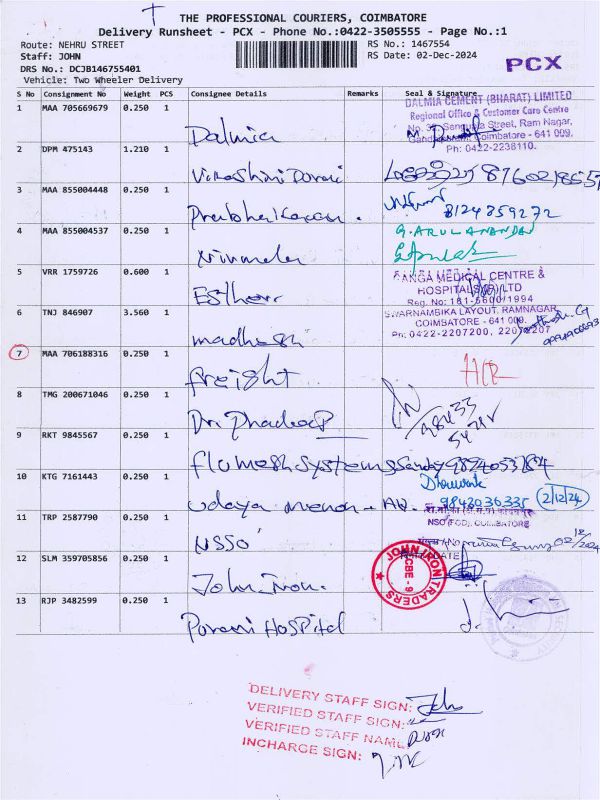 THE PROFESSIONAL COURIERS, COIMBATORE
Delivery Runsheet - PCX - Phone No.:0422-3505555 - Page No.:1
Route: NEHRU STREET
RS No.: 1467554
Staff: JOHN
RS Date: 02-Dec-2024
DRS No.: DCJB146755401
Vehicle: Two Wheeler Delivery
PCX
S No Consignment No Weight PCS Consignee Details Remarks Seal & Signature
1 MAA 705669679 0.250 1 Dalmia
DALMIA CEMENT (BHARAT) LIMITED
Regional Office & Customer Care Centre
Street, Ram Nagar,
Coimbatore - 641 009.
Ph: 0422-2238110.
2 DPM 475143 1.210 1
3 MAA 855004448 0.250 1 Prabhakaran.
8124859272
4 MAA 855004537 0.250 1
G. ARULANANDAN
5 VRR 1759726 0.600 1 Esther
GANGA MEDICAL CENTRE &
HOSPITALS LTD
Reg. No: 181-5600/1994
SWARNAMBIKA LAYOUT, RAMNAGAR
COIMBATORE - 641 009.
Ph: 0422-2207200,
6 TNJ 846907 3.560 1 madhesh
7 MAA 706188316 0.250 1 freight
8 TMG 200671046 0.250 1 Dr. Phadeep
98433
9 RKT 9845567 0.250 1 flumesh systems
10 KTG 7161443 0.250 1 udaya menon
9843036335 2/12/24
11 TRP 2587790 0.250 1 NSSO
NSO (FOD), COIMBATORE
12 SLM 359705856 0.250 1 John Iron.
JOHN IRON TRADERS
CBE - 9
13 RJP 3482599 0.250 1 Parani Hospital
DELIVERY STAFF SIGN:
VERIFIED STAFF SIGN:
VERIFIED STAFF NAME
INCHARGE SIGN: